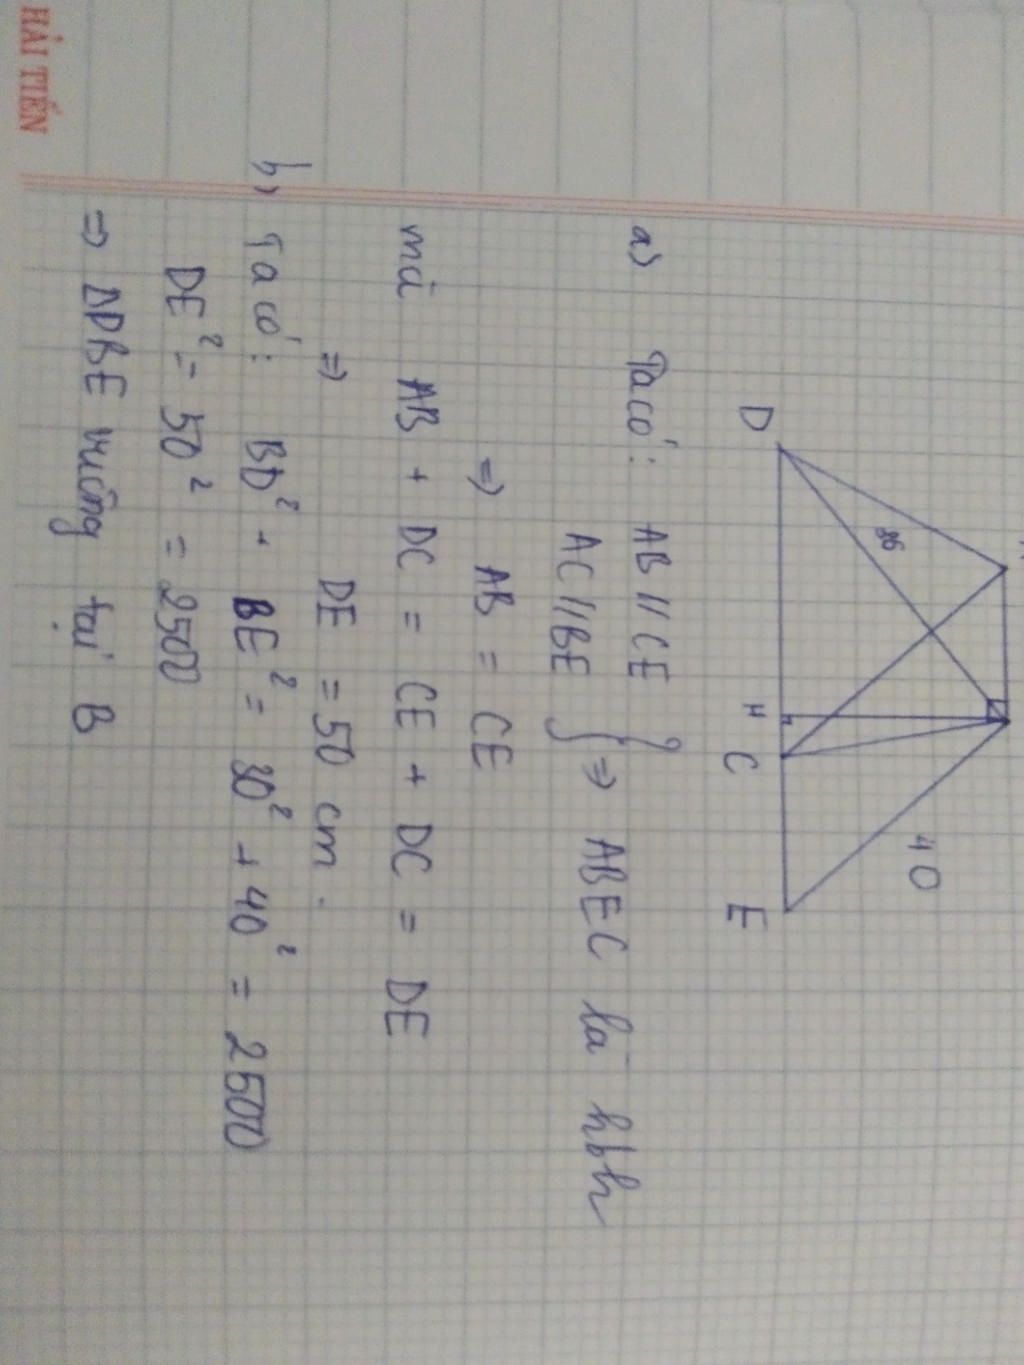 HẢI TIẾN
D
H
C
40
E
a) Ta có: AB // CE
AC // BE } => ABEC là hbh
=> AB = CE
mà AB + DC = CE + DC = DE
=> DE = 50 cm.
b) Ta có: BD² + BE² = 30² + 40² = 2500
DE² = 50² = 2500
=> ΔDBE vuông tại B